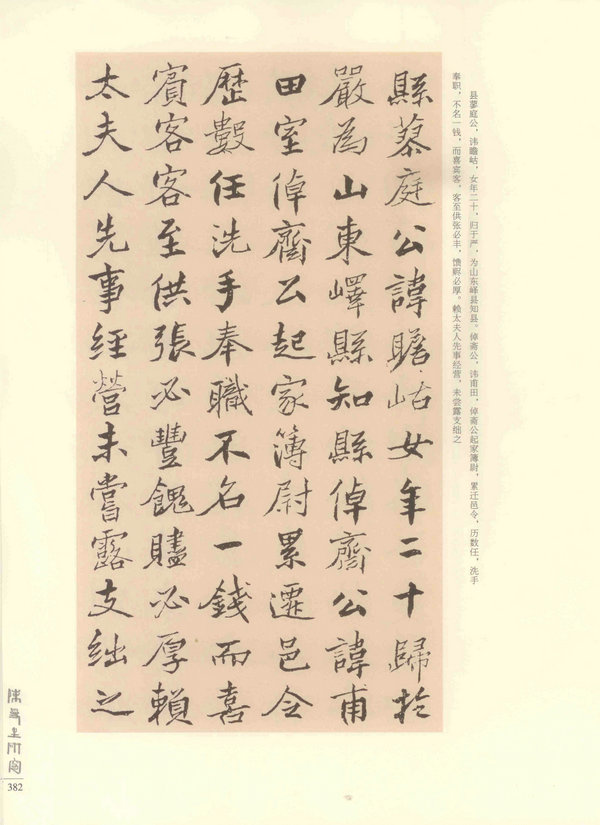 县蓼庭公，讳瞻岵，女年二十，归于严，为山东峄县知县。倬斋公，讳甫田，倬斋公起家簿尉，累迁邑令，历数任，洗手
奉职，不名一钱，而喜宾客，客至供张必丰，馈赆必厚。赖太夫人先事经营，未尝露支绌之
縣蓼庭公諱瞻岵女年二十歸於
嚴為山東嶧縣知縣倬齋公諱甫
田室倬齋公起家簿尉累遷邑令
歷數任洗手奉職不名一錢而喜
賓客客至供張必豐餽贐必厚賴
太夫人先事經營未嘗露支絀之
382